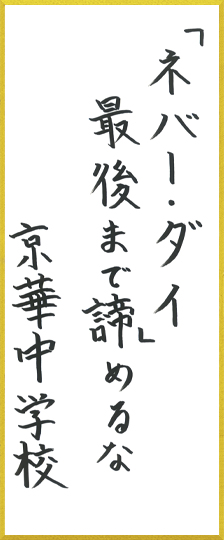 「ネバー・ダイ
最後まで諦めるな」
京華中学校